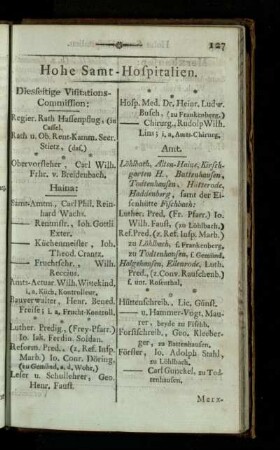 127
Hohe Samt-Hospitalien.
Diesseitige Visitations-
Commission:
Regier. Rath Hassenpflug, (in
Cassel.
Rath u. Ob. Rent-Kamm. Secr.
Stietz, (das.)
Obervorsteher, Carl Wilh.
Frhr. v. Breidenbach.
Haina:
Samt-Amtm., Carl Phil. Rein-
hard Wachs.
— Rentmstr., Ioh. Gottl.
Exter.
— Küchenmeister, Ioh.
Theod. Crantz.
— Fruchtschr., Wilh.
Reccius.
Amts-Actuar. Wilh. Wittekind,
Bauverwalter, Henr. Bened.
Freise
Luther. Predig., (Frey-Pfarr.)
Io. Iak. Ferdin. Soldan.
Reform. Pred., (z, Ref. Insp.
Marb.) Io. Conr. Döring,
Leser u. Schullehrer, Geo.
Henr. Faust.
Hosp. Med. Dr. Heinr. Ludw.
Busch, (zu Frankenberg.)
— Chirurg., Rudolph Wilh.
Amt.
Löhlbach, Alten-Haina, Kirsch-
garten H., Battenhausen,
Todtenhausen, Hütterode,
Haddenberg, samt der Ei-
senhütte Fischbach:
Luther. Pred. (Fr. Pfarr.) Io.
Wilh. Faust, (zu Löhlbach.)
Ref. Pred. (z. Ref. Insp. Marb.)
zu Löhlbach, s. Frankenberg,
zu Todtenhausen, s. Gemünd.
Halgehausen, Ellenrode, Luth.
Pred., (z. Conv. Rauschenb.)
s. unt. Rosenthal.
Hüttenschreib., Lic. Günst.
— u. Hammer-Vogt, Mau-
rer, beyde zu Fischb.
Forstschreib., Geo. Kleeber-
ger, zu Battenhausen.
Förster, Io. Adolph Stahl,
zu Löhlbach.
— Carl Gunckel, zu Tod-
tenhausen.
Merx-